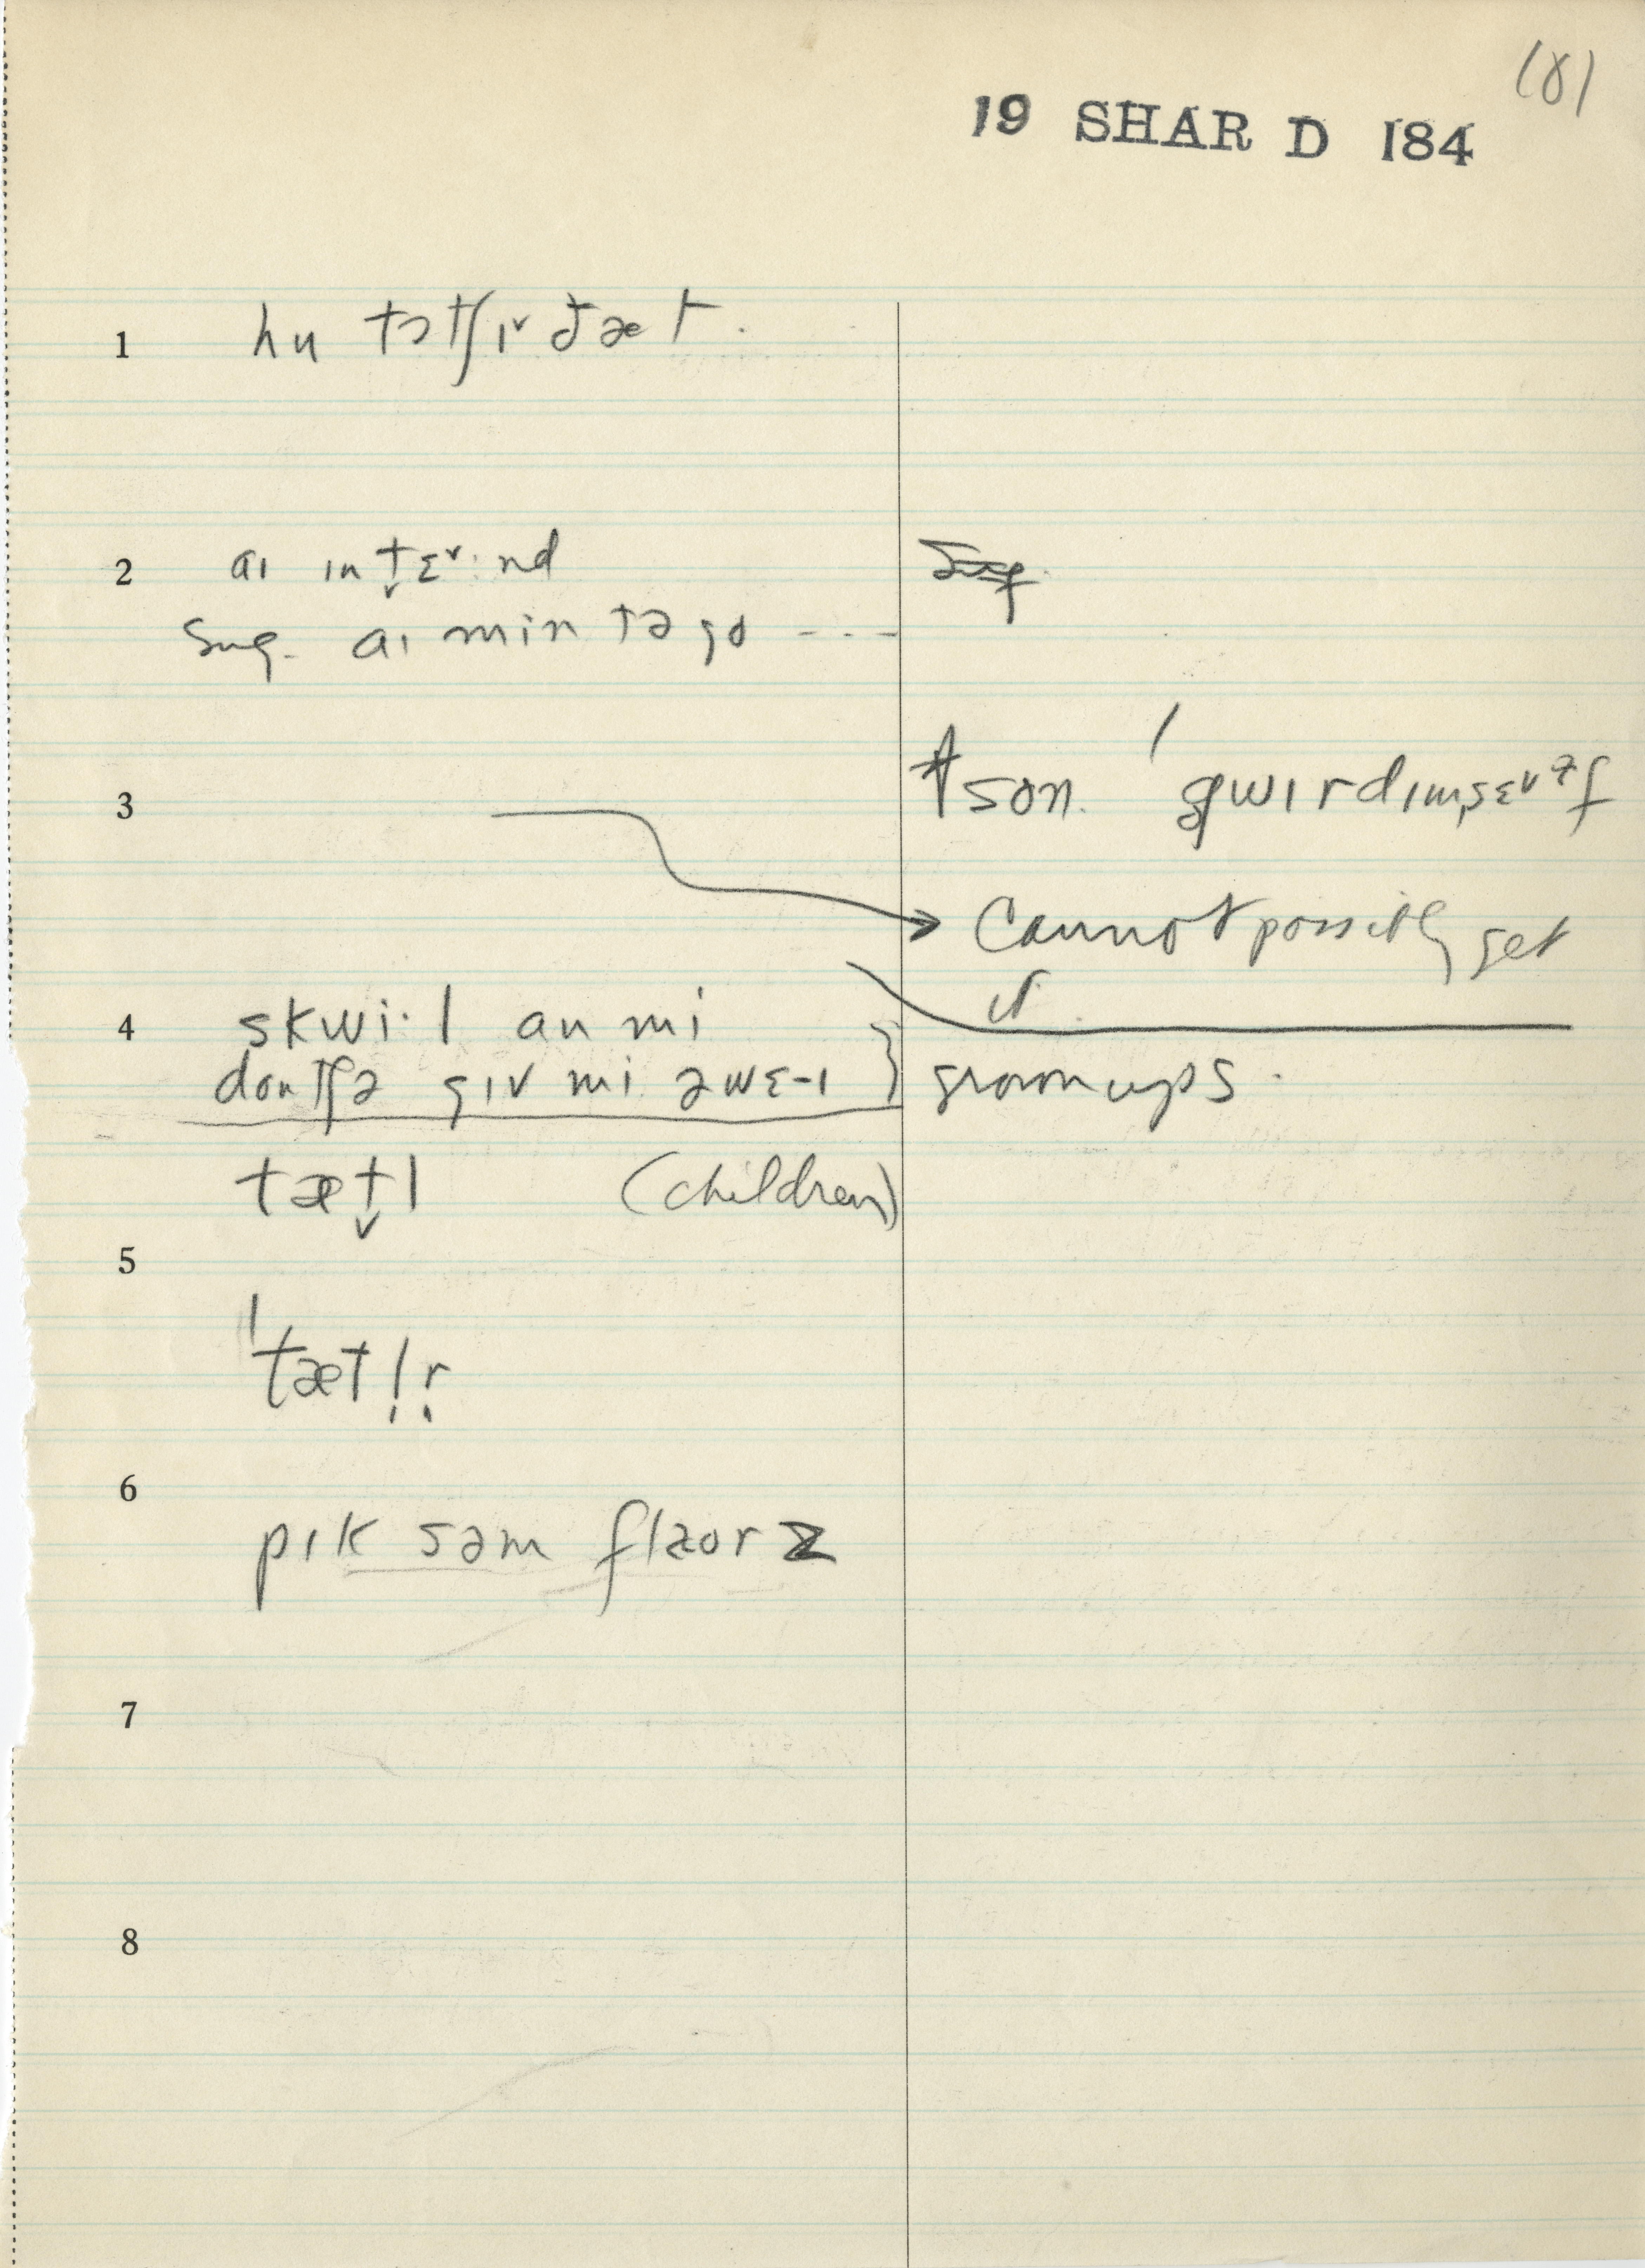 (8)
19 SHAR D 184
1 hu tɔtʃɪ˅ ðæt.
2 aɪ ɪnt̬ɛ˅·nd
sug. aɪ min tə go - - -
3 son. ˈgwɪrdɪmsɛ˅əf
Cannot possibly get
it.
4 skwi·l ɑn mi
dontʃə gɪv mi əwɛ-ɪ } grownups.
tæt̬l (children)
5
ˈtætl̩r̩
6
pɪk səm flaorz
7
8